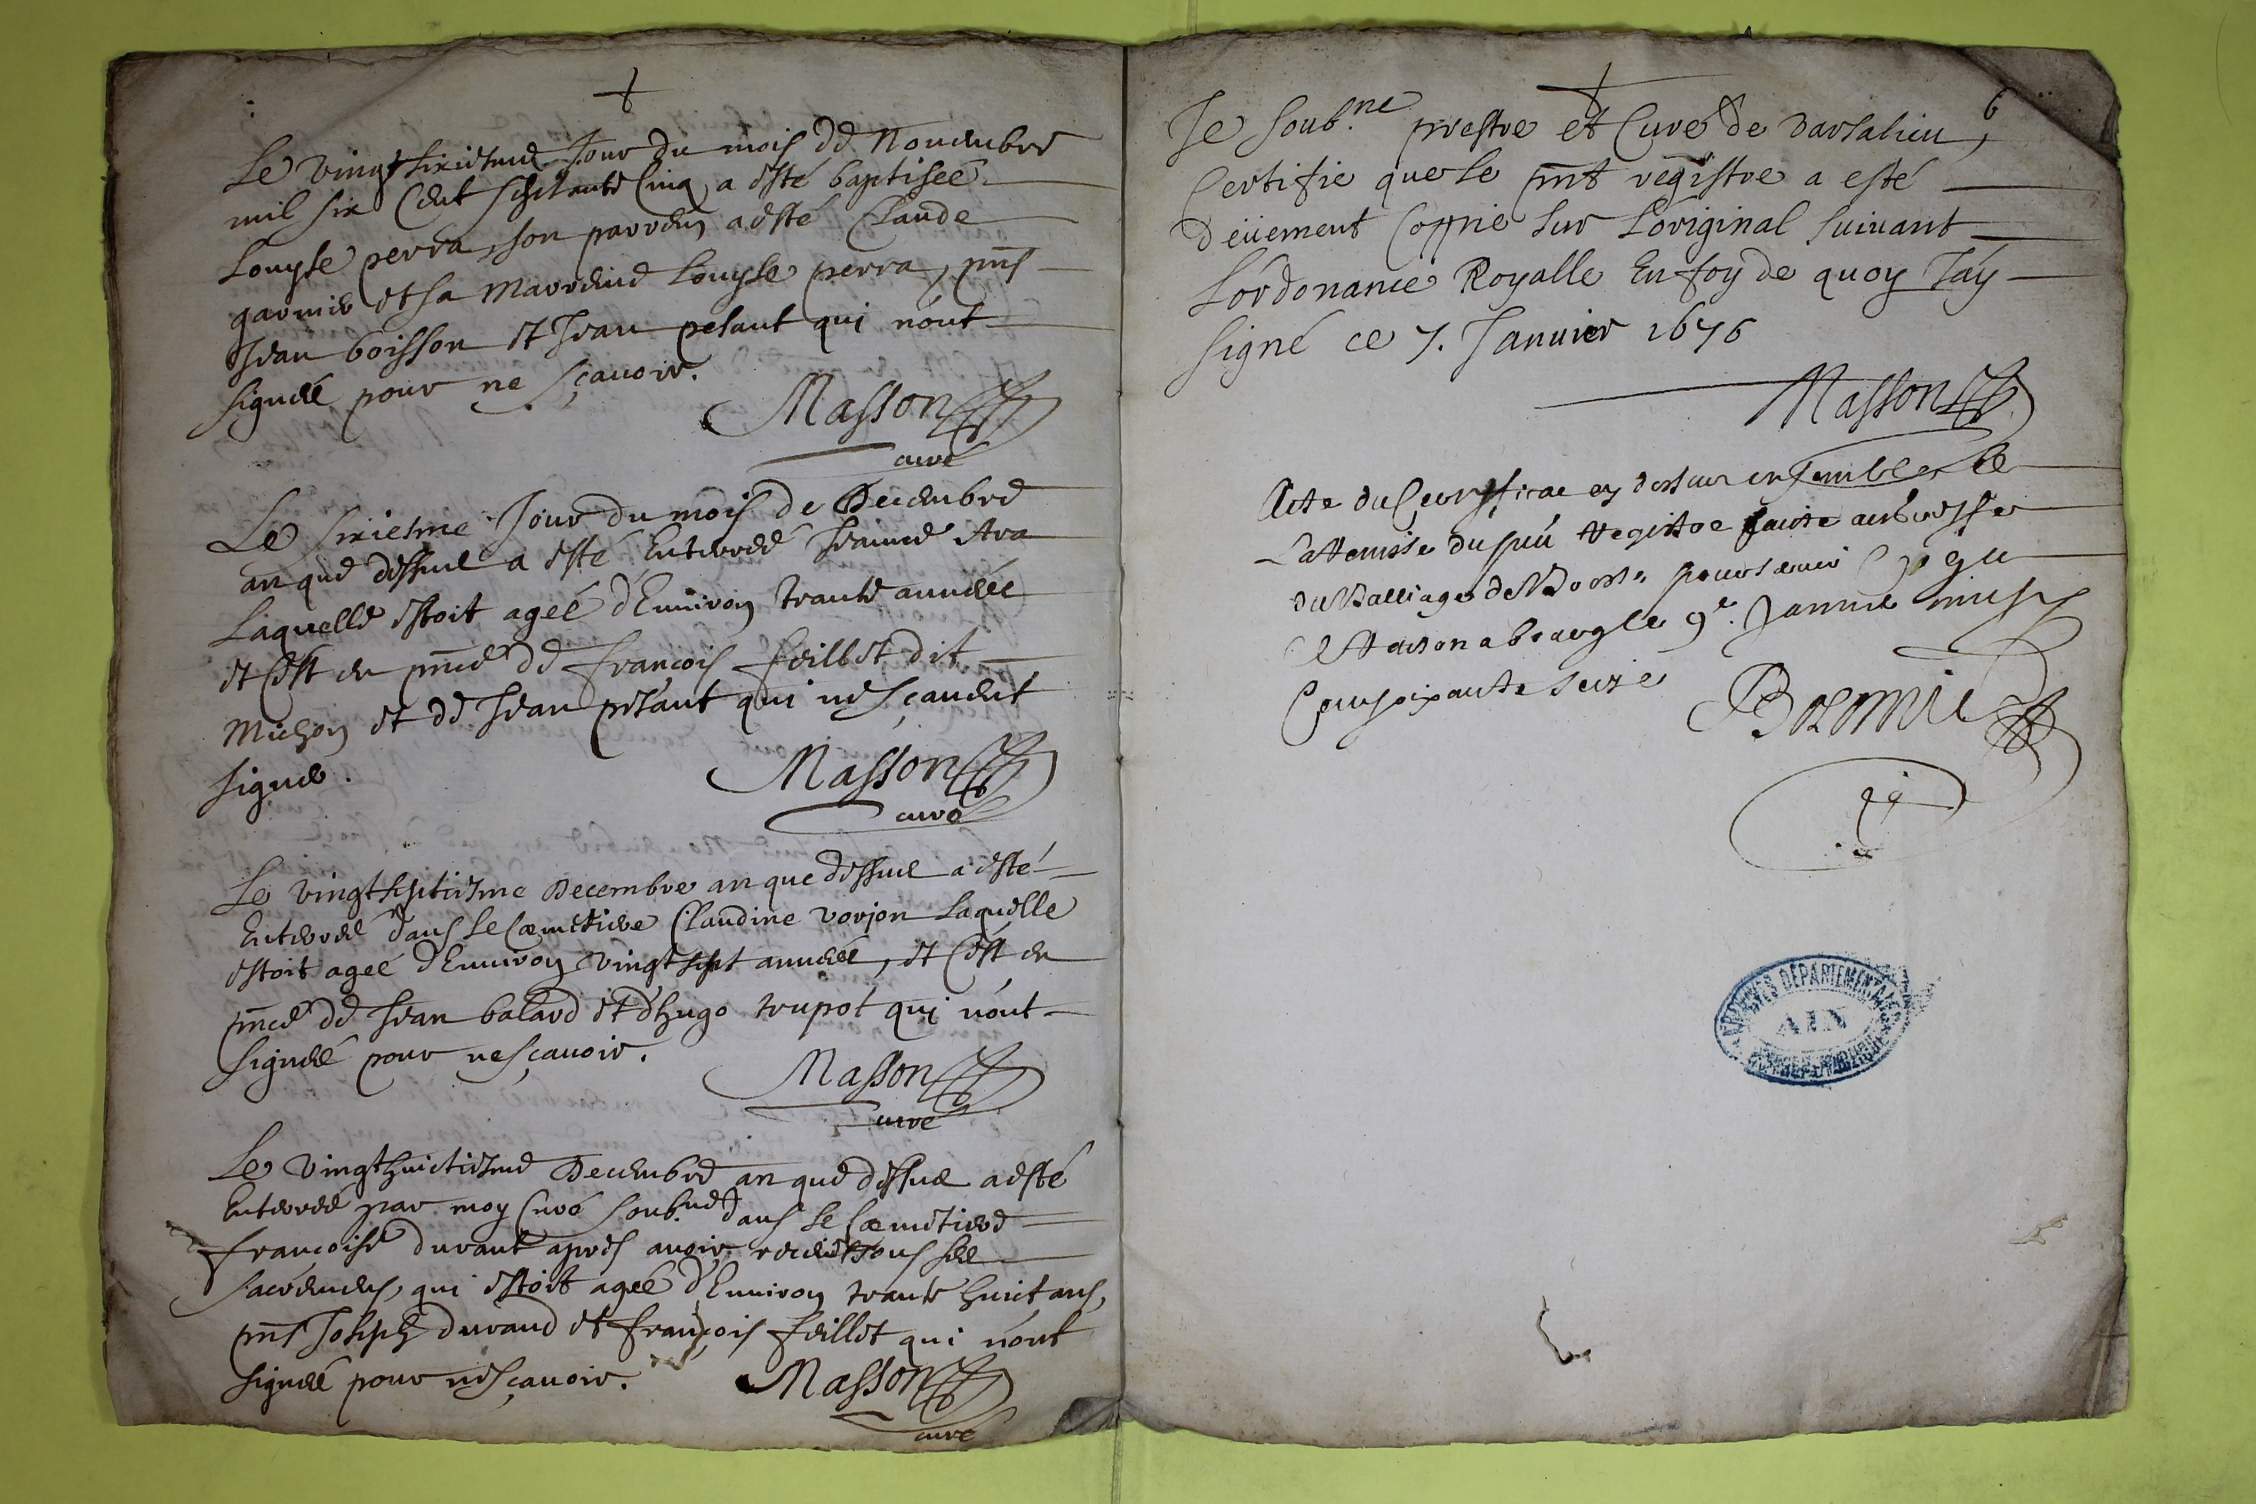 Le vingt sixiesme Jour du mois de Novembre
mil six Cent septante Cinq a esté baptisée
Louyse perra, son parrein a esté Claude
garnier et sa Marreine Louyse perra, pnts
Jean boisson et Jean pesant qui n'ont
signéé pour ne sçavoir.
Masson
curé
Le sixiesme Jour du mois de Decembre
an que dessus a esté Enterréé Jeanne
Laquelle estoit ageé d'Environ trante annéés
et C'est en pnce de françois feillet dit
Michon et de Jean pesant qui ne sçavent
signer.
Masson
curé
Le vingtseptiesme Decembre an que dessus a esté
Enterréé dans le Cœmetiere Claudine vorjon Laquelle
estoit ageé d'Environ vingt sept annéés, et C'est en
pnce de Jean balard et d'hugo trupot qui n'ont
signéé pour ne sçavoir.
Masson
curé
Le vingthuictiesme Decembre an que dessus a esté
Enterréé par moy Curé soub.né dans le Cœmetiere
françoise durant apres avoir receu tous ses
sacremens, qui estoit ageé d'Environ trante huict ans,
pnts Joseph durand et françois feillet qui n'ont
signéé pour ne sçavoir.
Masson
curé
6
Je soub.né prestre et Curé de varsalieu,
Certifie que le pnt registre a esté
deüement Coppié sur L'original suivant
L'ordonance Royalle En foy de quoy J'ay
signé ce 7. Janvier 1676
Masson
Acte du Certifficat cy dessus ensemble de
La Remise du pnt Registre faicte au Greffe
du Balliage de pour servir
et a bourg le 9e. Janvier mil six
Cent soixante seize
ARCHIVES DÉPARTEMENTALES
AIN